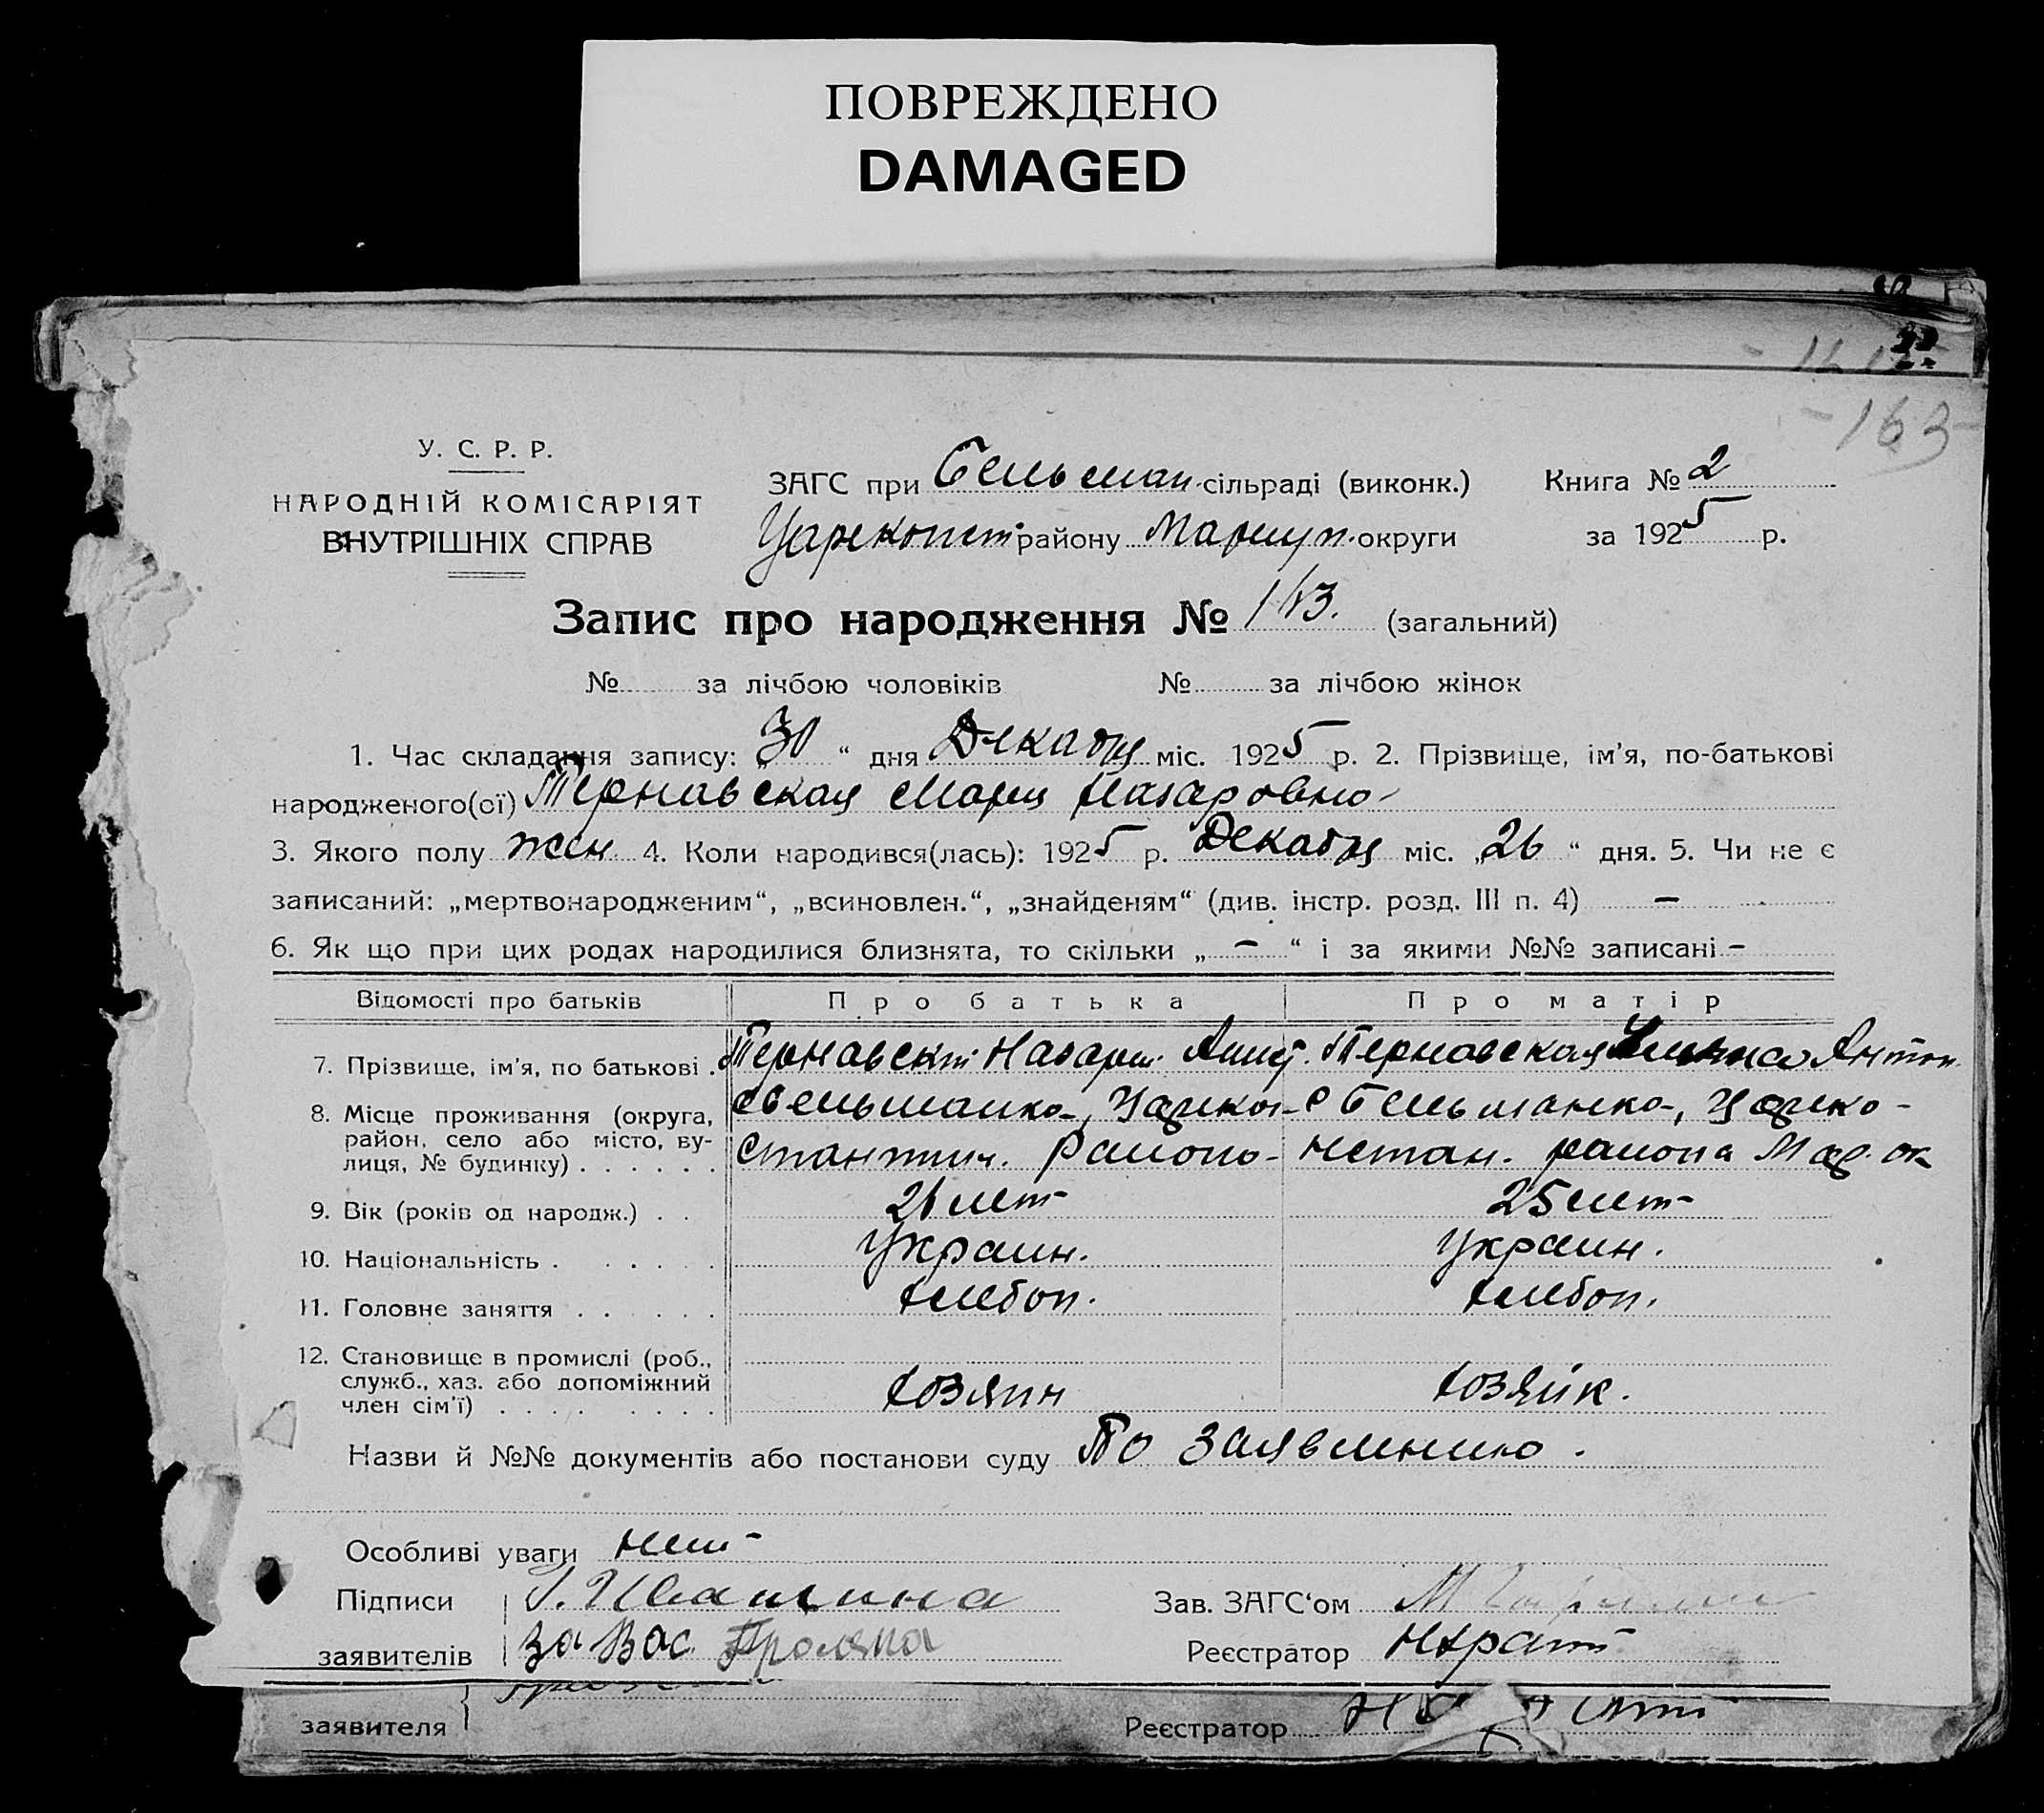 ПОВРЕЖДЕНО
DAMAGED
163
У. С. Р. Р.
НАРОДНІЙ КОМІСАРІЯТ
ВНУТРІШНІХ СПРАВ
ЗАГС при Бельман. сільраді (виконк.) Книга № 2
Царекопст. району Мариуп. округи за 1925 р.
Запис про народження № 163. (загальний)
№ за лічбою чоловіків № за лічбою жінок
1. Час складання запису: „30“ дня Декабря міс. 1925 р. 2. Прізвище, ім'я, по-батькові
народженого(ої) Тернавская Мария Назаровна
3. Якого полу жен 4. Коли народився(лась): 1925 р. Декабря міс. „26“ дня. 5. Чи не є
записаний: „мертвонародженим“, „всиновлен.“, „знайденям“ (див. інстр. розд. III п. 4) —
6. Як що при цих родах народилися близнята, то скільки „—“ і за якими №№ записані —
Відомості про батьків Про батька Про матір
7. Прізвище, ім'я, по батькові . Тернавский Назарий Тернавская Антон.
8. Місце проживання (округа, с Бельманка, Царекон- с Бельманка, Цареко-
район, село або місто, ву- стантин. района нстан. района Мар. ок
лиця, № будинку) . . . . . .
9. Вік (років од народж.) . . 26 лет 25 лет
10. Національність . . . . . Украин. Украин.
11. Головне заняття . . . . . хлебоп. хлебоп.
12. Становище в промислі (роб.,
служб., хаз. або допоміжний хозяин хозяйк.
член сім'ї) . . . . . . . .
Назви й №№ документів або постанови суду По заявлению.
Особливі уваги нет
Підписи Зав. ЗАГС'ом
заявителів за Вас. Реєстратор
заявителя Реєстратор